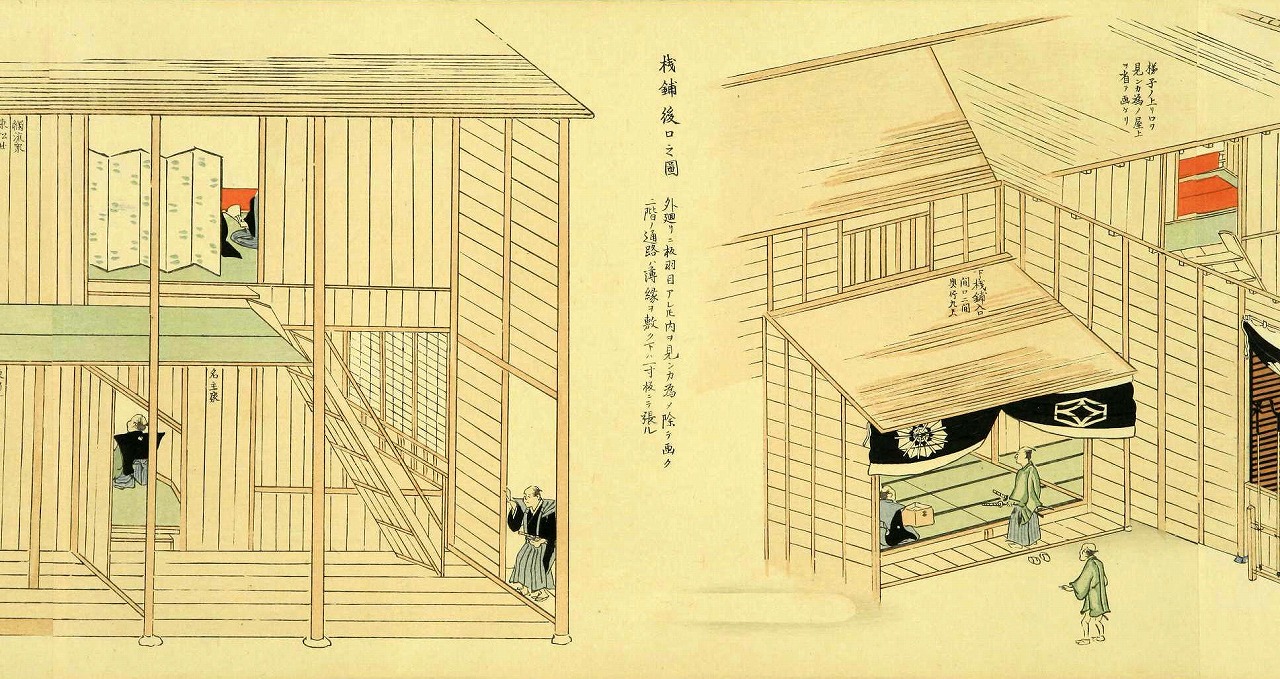 梯子ノ上リ口ヲ
見ンカ為ノ屋上
ヲ省テ画ケリ
下棧鋪入口
間口二間
奥行九尺
棧鋪後口之圖
外廻リニ板羽目アレ𪜈内ヲ見ンカ為メ除テ画ク
二階ノ通路ハ薄縁ヲ敷ク下ハ一寸板ニテ張ル
名主衆